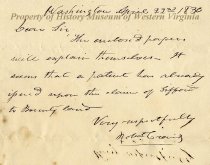 Washington April 22nd 1830
Property of History Museum of Western Virginia
Dear Sir
The enclosed papers
will explain themselves. It
seems that a patent has already
upon the claim of
to Bounty Land
Very respectfully
Robert Craig